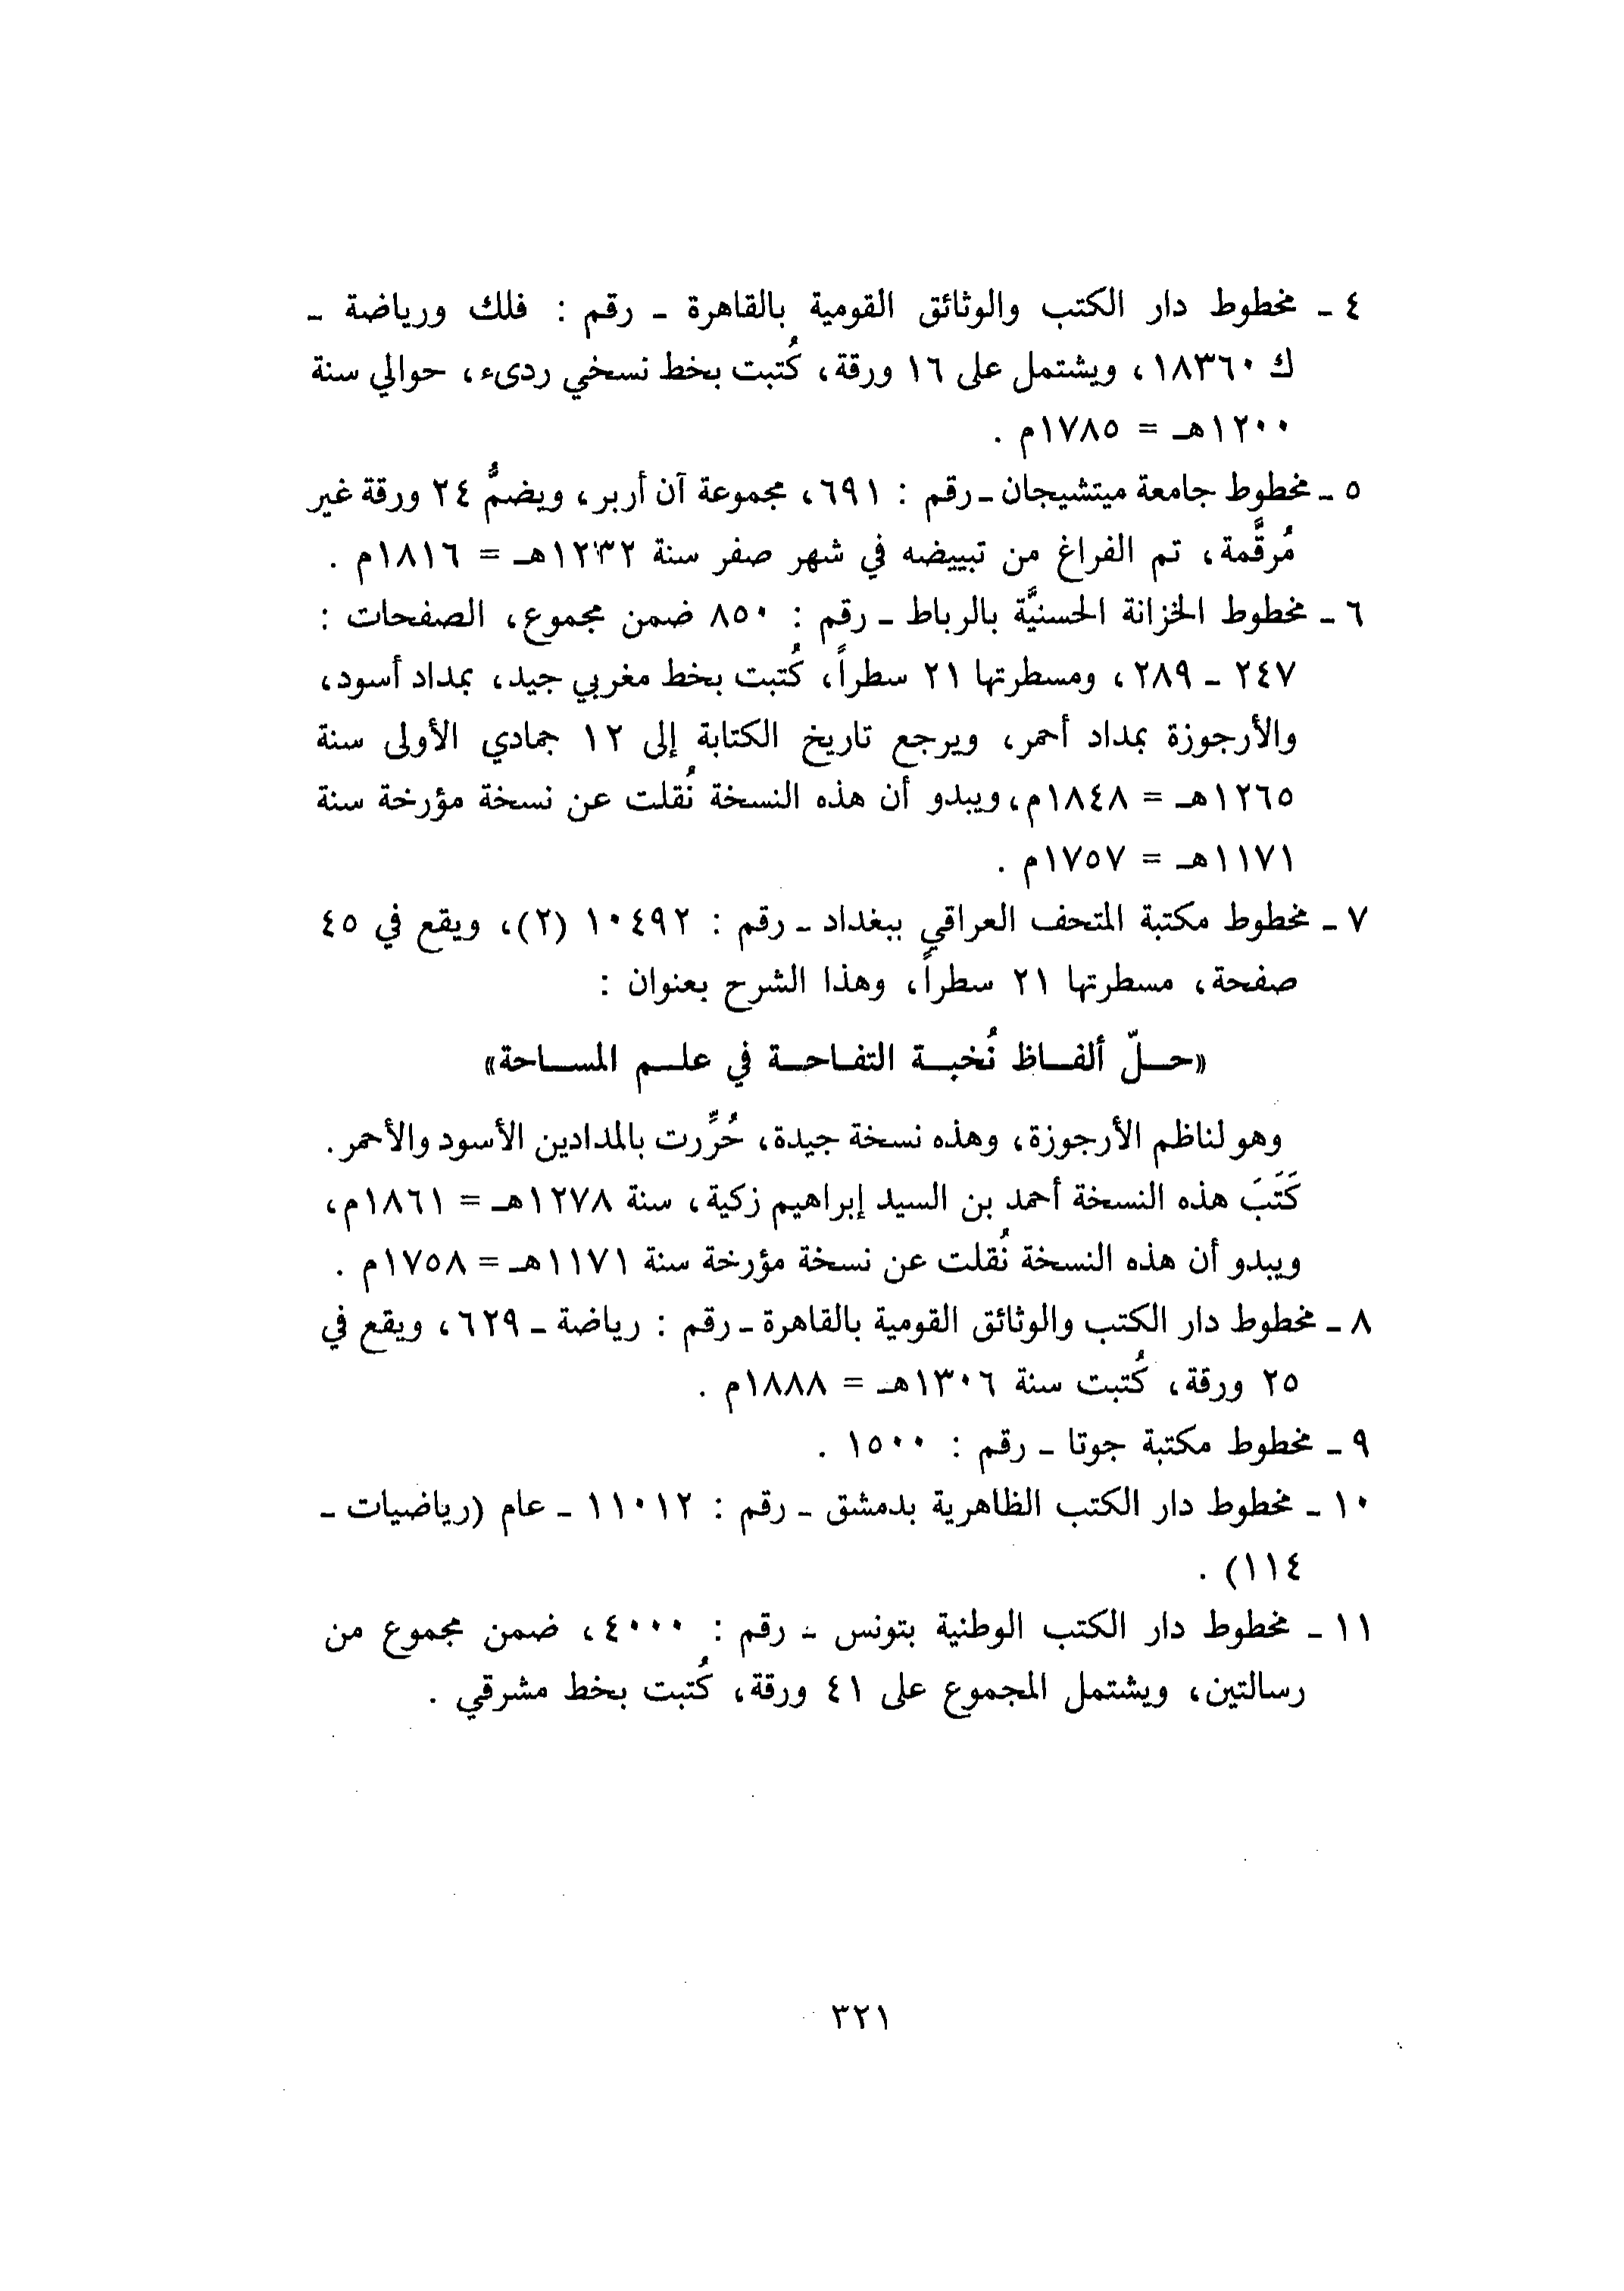 ٤ ـ مخطوط دار الكتب والوثائق القومية بالقاهرة ـ رقم : فلك ورياضة ـ
ك ١٨٣٦٠، ويشتمل على ١٦ ورقة، كُتبت بخط نسخي ردىء، حوالي سنة
١٢٠٠هـ = ١٧٨٥م .
٥ ـ مخطوط جامعة ميتشيجان ـ رقم : ٦٩١، مجموعة آن أربر، ويضمُّ ٢٤ ورقة غير
مُرقَّمة، تم الفراغ من تبييضه في شهر صفر سنة ١٢٣٢هـ = ١٨١٦م .
٦ ـ مخطوط الخزانة الحسنيَّة بالرباط ـ رقم : ٨٥٠ ضمن مجموع، الصفحات :
٢٤٧ ـ ٢٨٩، ومسطرتها ٢١ سطراً، كُتبت بخط مغربي جيد، بمداد أسود،
والأرجوزة بمداد أحمر، ويرجع تاريخ الكتابة إلى ١٢ جمادي الأولى سنة
١٢٦٥هـ = ١٨٤٨م، ويبدو أن هذه النسخة نُقلت عن نسخة مؤرخة سنة
١١٧١هـ = ١٧٥٧م .
٧ ـ مخطوط مكتبة المتحف العراقي ببغداد ـ رقم : ١٠٤٩٢ (٢)، ويقع في ٤٥
صفحة، مسطرتها ٢١ سطراً، وهذا الشرح بعنوان :
«حـلّ ألفـاظ نُخبـة التفـاحـة في علـم المسـاحة»
وهو لناظم الأرجوزة، وهذه نسخة جيدة، حُرِّرت بالمدادين الأسود والأحمر.
كَتَبَ هذه النسخة أحمد بن السيد إبراهيم زكية، سنة ١٢٧٨هـ = ١٨٦١م،
ويبدو أن هذه النسخة نُقلت عن نسخة مؤرخة سنة ١١٧١هـ = ١٧٥٨م .
٨ ـ مخطوط دار الكتب والوثائق القومية بالقاهرة ـ رقم : رياضة ـ ٦٢٩، ويقع في
٢٥ ورقة، كُتبت سنة ١٣٠٦هـ = ١٨٨٨م .
٩ ـ مخطوط مكتبة جوتا ـ رقم : ١٥٠٠ .
١٠ ـ مخطوط دار الكتب الظاهرية بدمشق ـ رقم : ١١٠١٢ ـ عام (رياضيات ـ
١١٤) .
١١ ـ مخطوط دار الكتب الوطنية بتونس ـ رقم : ٤٠٠٠، ضمن مجموع من
رسالتين، ويشتمل المجموع على ٤١ ورقة، كُتبت بخط مشرقي .
٣٢١